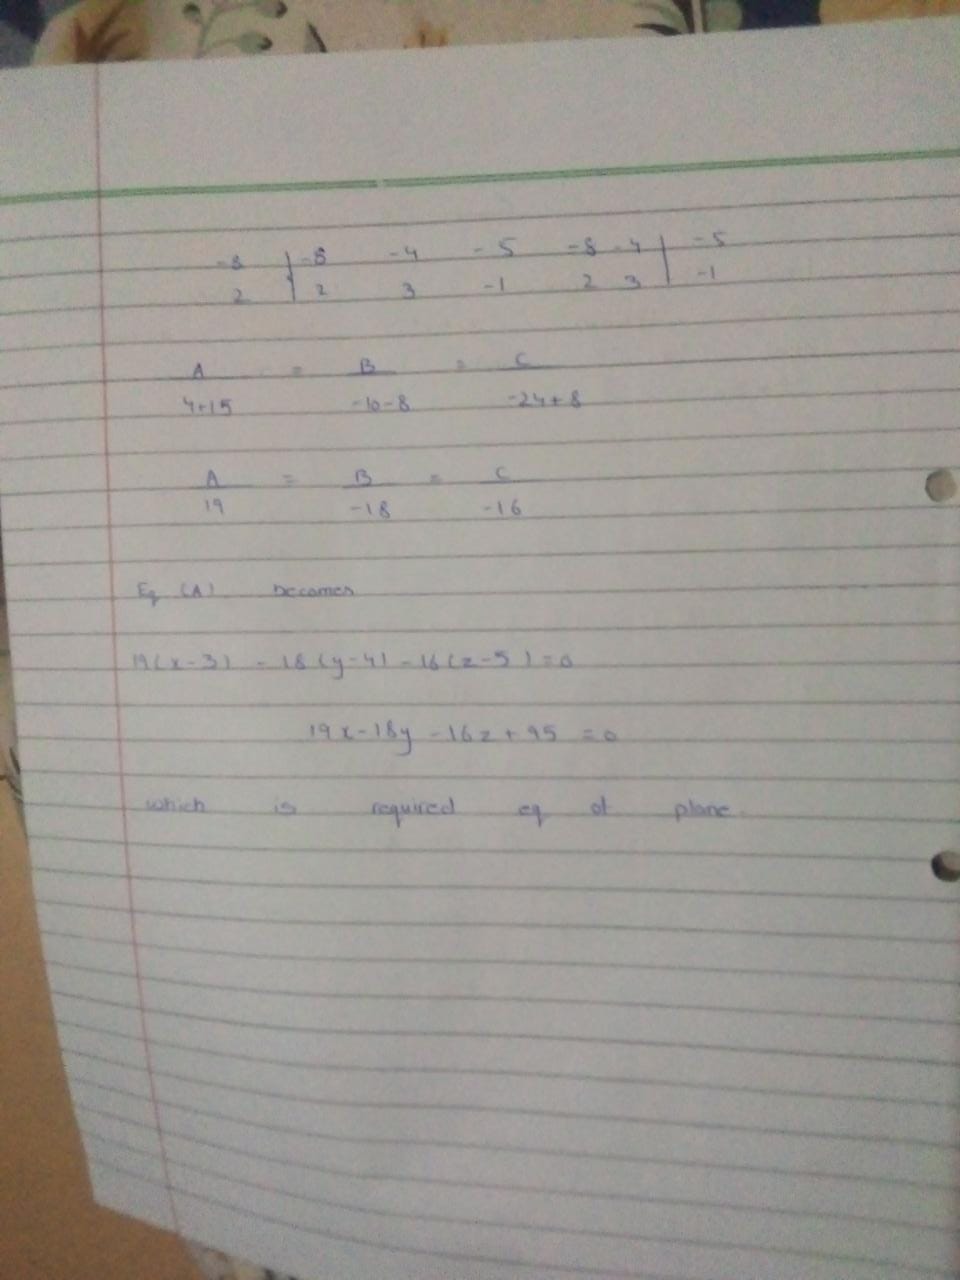 -8 | -8 -4 -5 -8 -4 | -5
2 | 2 3 -1 2 3 | -1
A = B = C
4+15 -10-8 -24+8
A = B = C
19 -18 -16
Eq (A) becomes
19(x-3) - 18(y-4) - 16(z-5) = 0
19x-18y -16z + 95 = 0
which is required eq of plane.